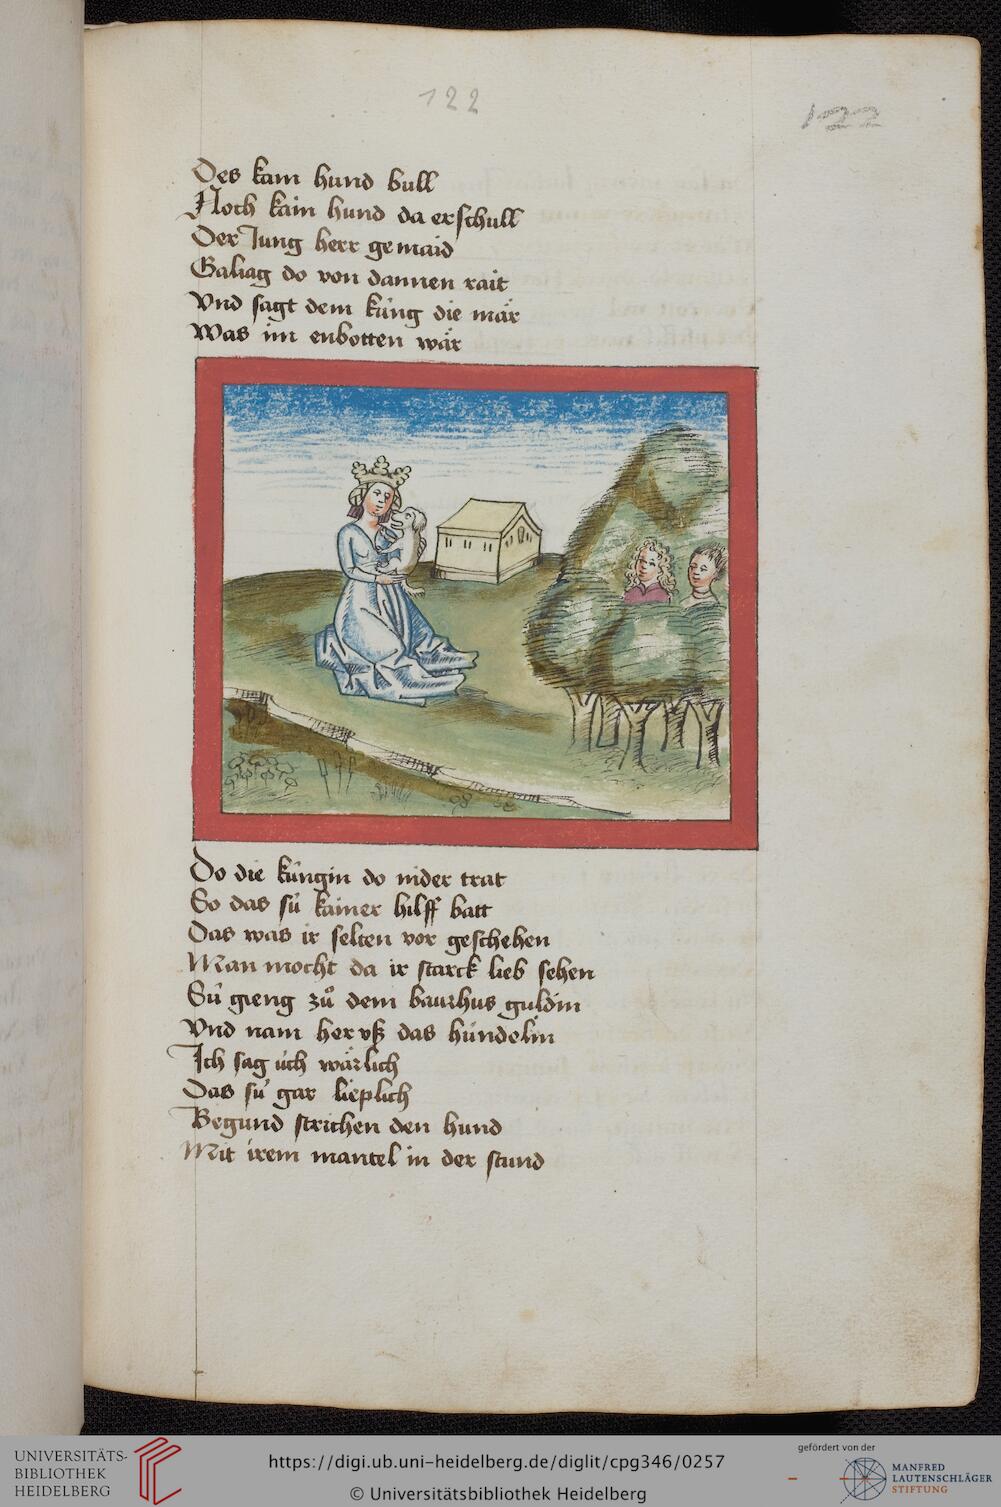 122
122
Des kam hund bull
Noch kain hund da erschull
Der Jung herr gemaid
Galiag do von dannen rait
Vnd sagt dem kúng die mär
Was im enbotten wär
Do die kúngin do nider trat
So das sú kainer hilff batt
Das was ir selten vor geschehen
Man mocht da ir starck lieb sehen
Sú gieng zů dem baurhus guldin
Vnd nam her vß das húndelin
Ich sag úch wärlich
Das sú gar lieplich
Begund strichen den hund
Mit irem mantel in der stund
UNIVERSITÄTS-
BIBLIOTHEK
HEIDELBERG
https://digi.ub.uni-heidelberg.de/diglit/cpg346/0257
© Universitätsbibliothek Heidelberg
gefördert von der
MANFRED
LAUTENSCHLÄGER
STIFTUNG